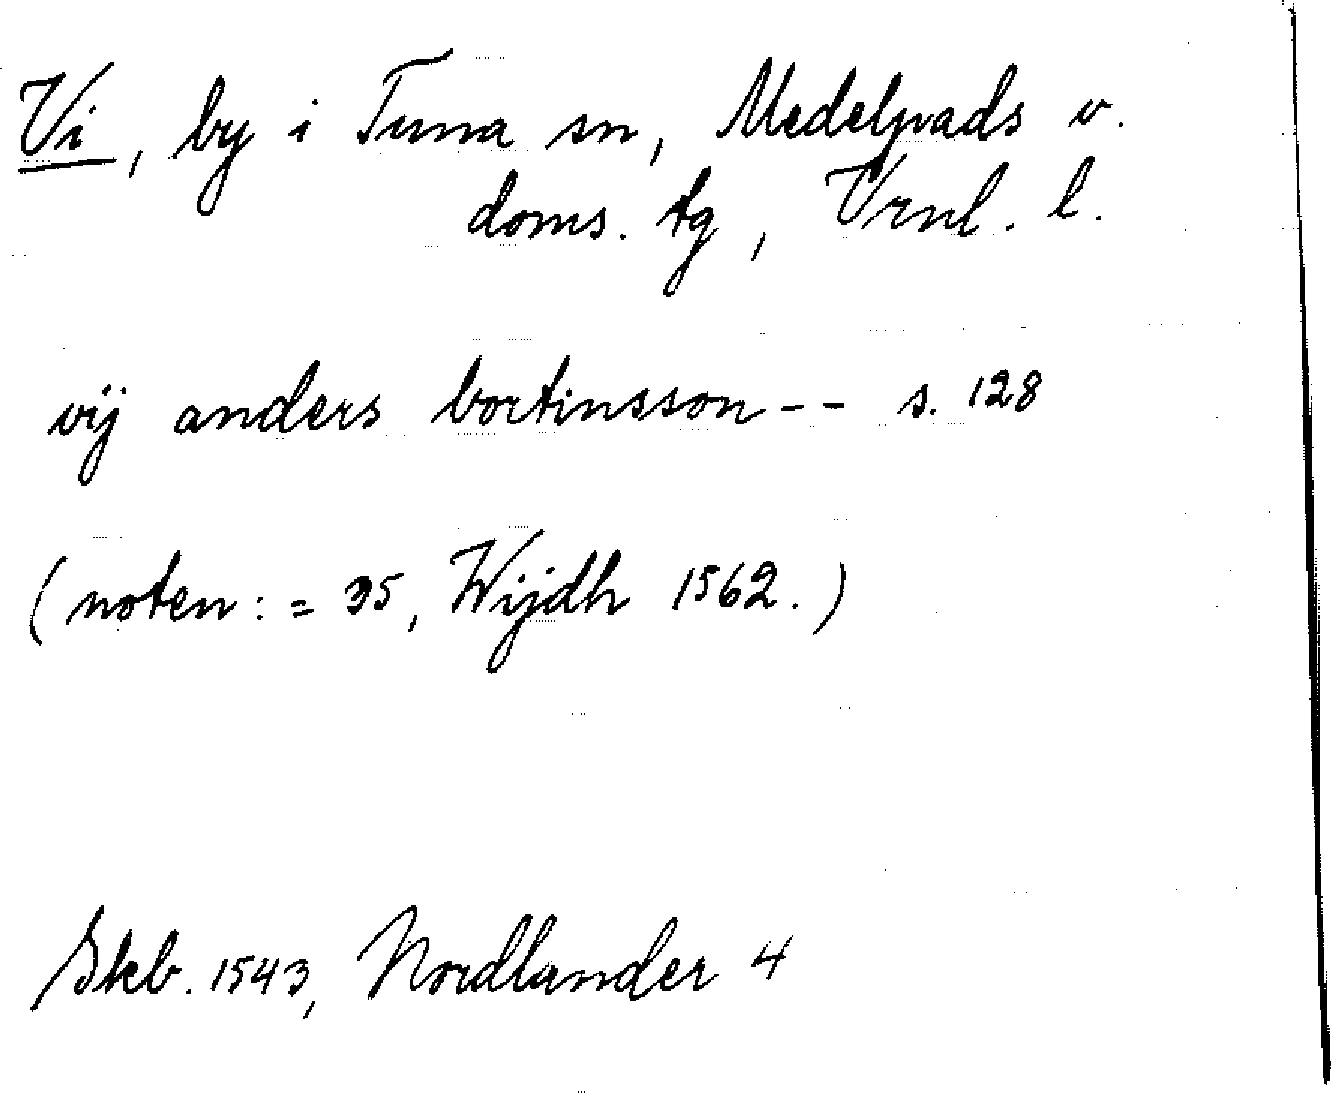 Vi, by i Tuna sn, Medelpads v.
doms. tg, Vrnl. l.
vij anders bortinsson -- s. 128
(noten: = 35, Wijdh 1562.)
Skb. 1543, Nordlander 4